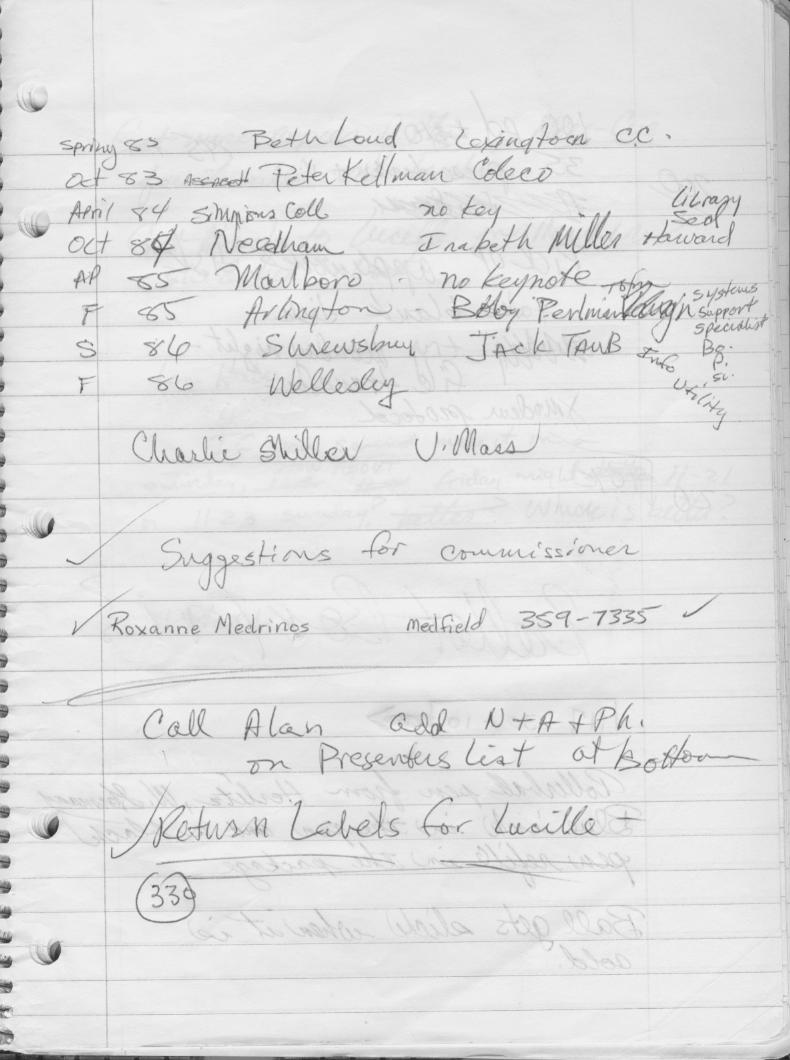 Spring 83 Beth Loud Lexington C.C.
Oct 83 Peter Kellman Coleco
April 84 Simmons Coll no key Library
Oct 84 Needham Inabeth Miller Harvard
AP 85 Marlboro - no keynote
F 85 Arlington Bobby Perlman systems support specialist
S 86 Shrewsbury Jack Taub Info Utility
F 86 Wellesley
Charlie Shiller U. Mass
Suggestions for commissioner
Roxanne Medrinos Medfield 359-7335
Call Alan add N + A + Ph.
on Presenters List at bottom
Return Labels for Lucille -
330